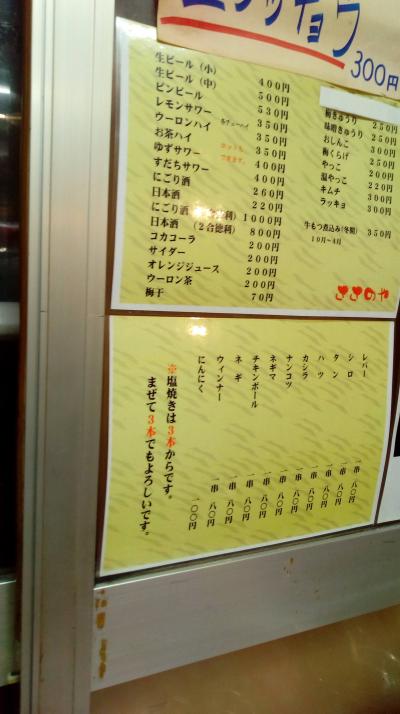 ラッキョウ
300円
生ビール（小） 400円
生ビール（中） 500円
ビンビール 530円
レモンサワー 350円
ウーロンハイ 350円
お茶ハイ 350円
ゆずサワー 400円
すだちサワー 400円
にごり酒 260円
日本酒 220円
にごり酒 1000円
日本酒（2合徳利） 800円
コカコーラ 200円
サイダー 200円
オレンジジュース 200円
ウーロン茶 200円
梅干 70円
梅きゅうり 250円
味噌きゅうり 250円
おしんこ 300円
梅くらげ 250円
やっこ 200円
温やっこ 220円
キムチ 300円
ラッキョ 300円
牛もつ煮込み（冬期） 350円
10月〜4月
ささのや
レバー 一串 八〇円
シロ 一串 八〇円
タン 一串 八〇円
ハツ 一串 八〇円
カシラ 一串 八〇円
ナンコツ 一串 八〇円
ネギマ 一串 八〇円
チキンボール 一串 八〇円
ネギ 一串 八〇円
ウィンナー 一串 八〇円
にんにく 一〇〇円
※塩焼きは3本からです。
まぜて3本でもよろしいです。